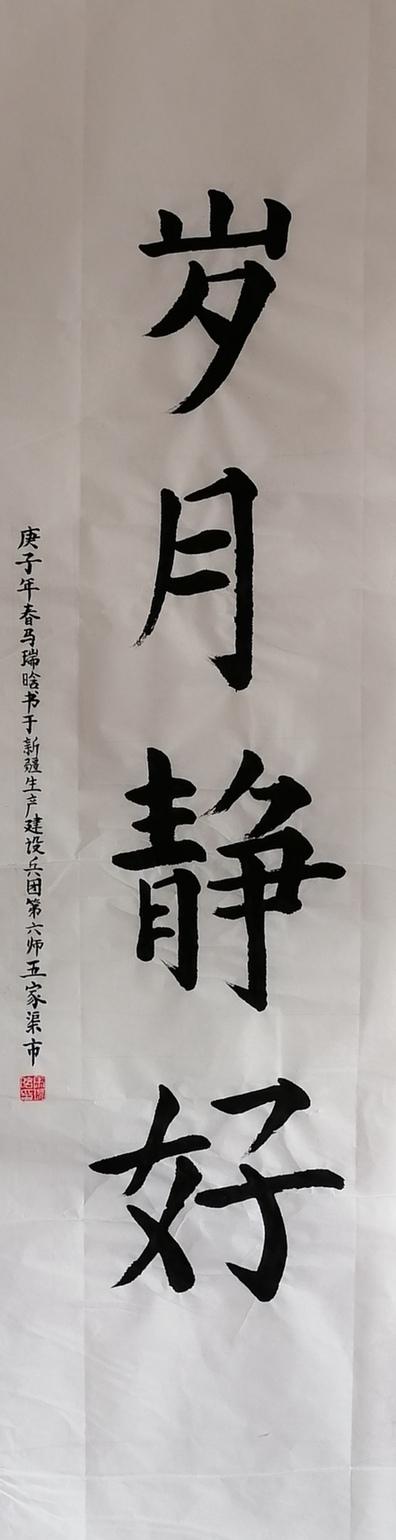 岁月静好
庚子年春马瑞晗书于新疆生产建设兵团第六师五家渠市